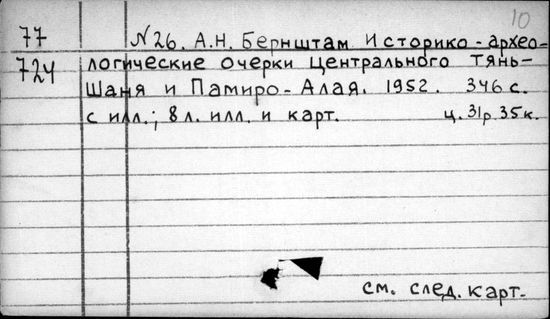 10
77 N26. А.Н. Бернштам Историко-архео-
724 логические очерки Центрального Тянь-
Шаня и Памиро-Алая. 1952. 346 с.
с илл.; 8 л. илл. и карт. ц. 31р. 35к.
см. след. карт.